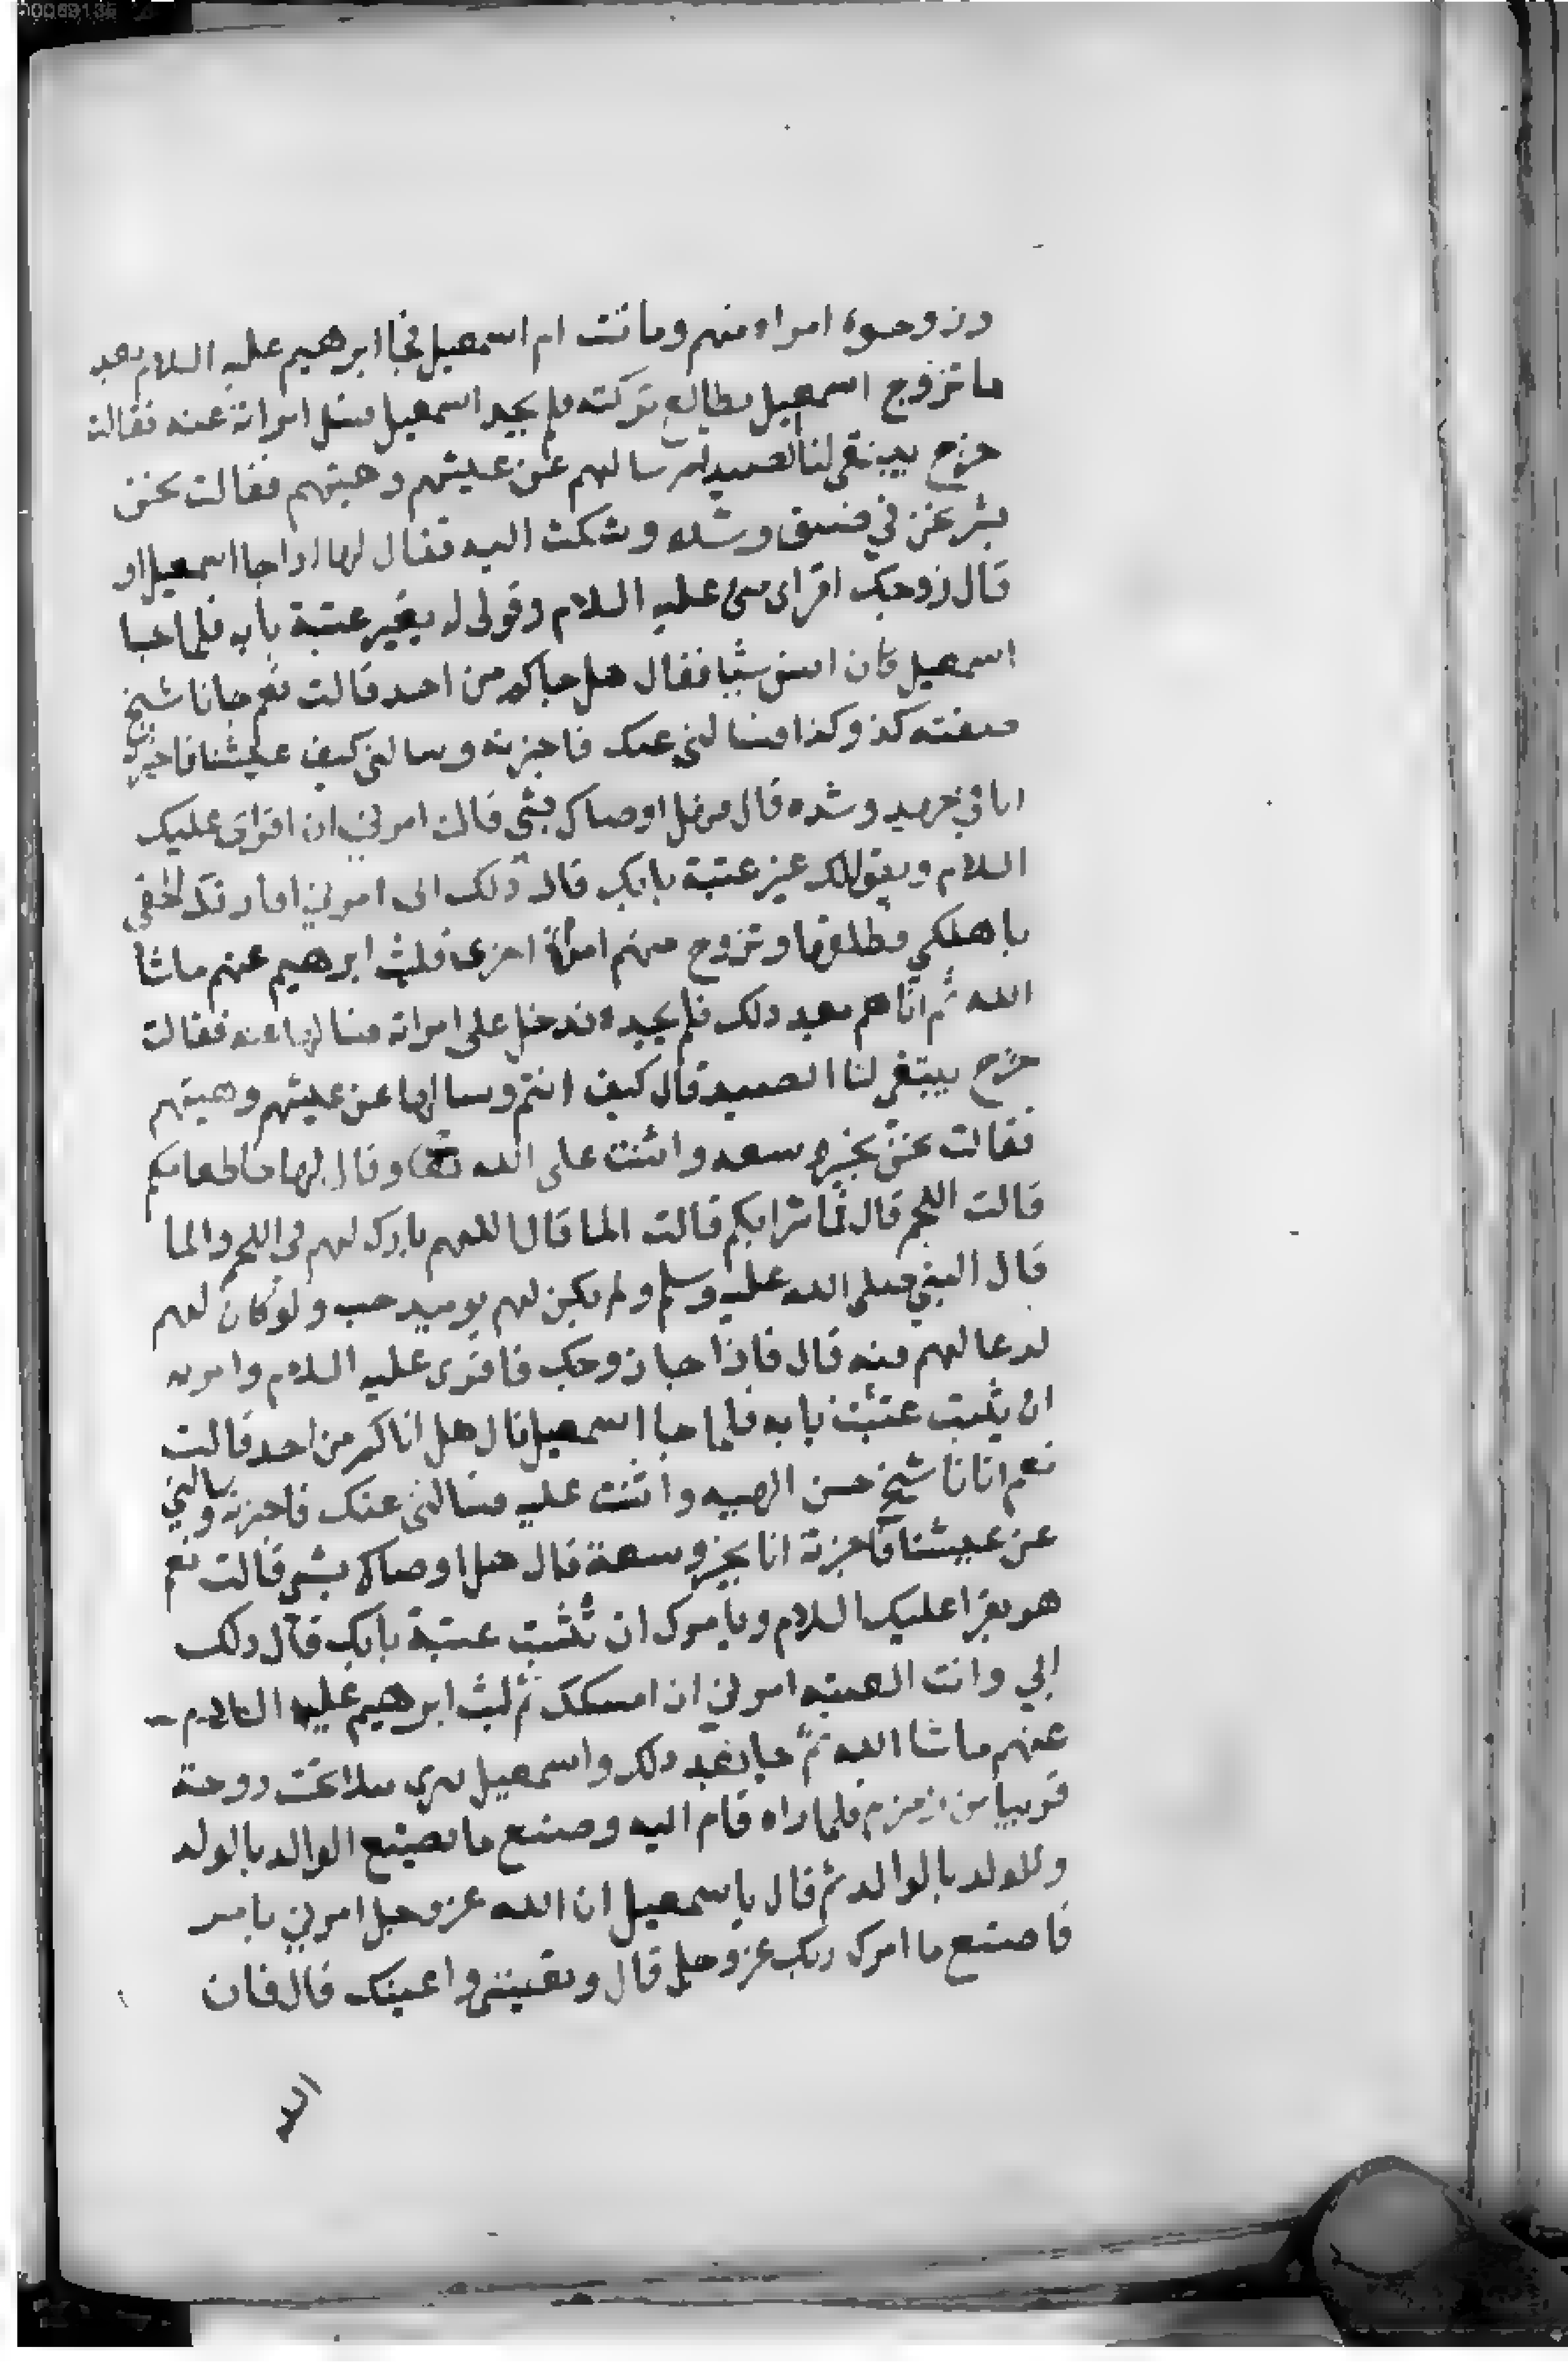 وزوجوه امراه منهم وماتت ام اسمعيل فجا ابرهيم عليه السلام بعد
ما تزوج اسمعيل يطالع تركته فلم يجد اسمعيل فسئل امراته عنه فقالت
خرج يبتغى لنا الصيد ثم سالهم عن عيشهم وهيتهم فقالت نحن
بشر نحن في ضيق وشده وشكت اليه فقال لها اذا جا اسمعيل او
قال زوجك اقراى منى عليه السلام وقولى له يغير عتبة بابه فلما جا
اسمعيل كان انس شيا فقال هل جاكم من احد قالت نعم جانا شيخ
صفته كذ وكذا فسالنى عنك فاخبرته وسالنى كيف عيشنا فاخبرته
انا في جهيد وشده قال فهل اوصاك بشى قالت امرني ان اقراى عليك
السلام ويقول لك غير عتبة بابك قال ذلك ابى امرني افارقك الحقى
باهلكي فطلقها وتزوج منهم امراة اخرى فلبث ابرهيم عنهم ماشا
الله ثم اتاهم بعد ذلك فلم يجده فدخل على امراته فسالها عنه فقالت
خرج يبتغى لنا الصيد قال كيف انتم وسالها عن عيشهم وهيتهم
فقالت نحن بخير وسعه واثنت على الله تعا وقال لها ما طعامكم
قالت اللحم قال فما شرابكم قالت الما قال اللهم بارك لهم فى اللحم والما
قال النبي صلى الله عليه وسلم ولم يكن لهم يوميد حب ولو كان لهم
لدعا لهم فيه قال فاذا جا زوجك فاقرى عليه السلام وامريه
ان يثبت عتبت بابه فلما جا اسمعيل قال هل اتاكم من احد قالت
نعم اتانا شيخ حسن الهييه واثنت عليه فسالنى عنك فاخبرته وسالني
عن عيشنا فاخبرته انا بخير وسعة قال هل اوصاك بشى قالت نعم
هو يقرا عليك السلام ويامرك ان تثبت عتبة بابك قال ذلك
ابي وانت العتبه امرني ان امسكك ثم لبث ابرهيم عليه السلام
عنهم ماشا الله ثم جا بعد ذلك واسمعيل يبرى نبلا تحت دوحة
قريبا من زمزم فلما راه قام اليه وصنع ما يصنع الوالد بالولد
وللولد بالوالد ثم قال ياسمعيل ان الله عز وجل امرني بامر
فاصنع ما امرك ربك عز وجل قال وتعيننى واعينك قال فان
الله